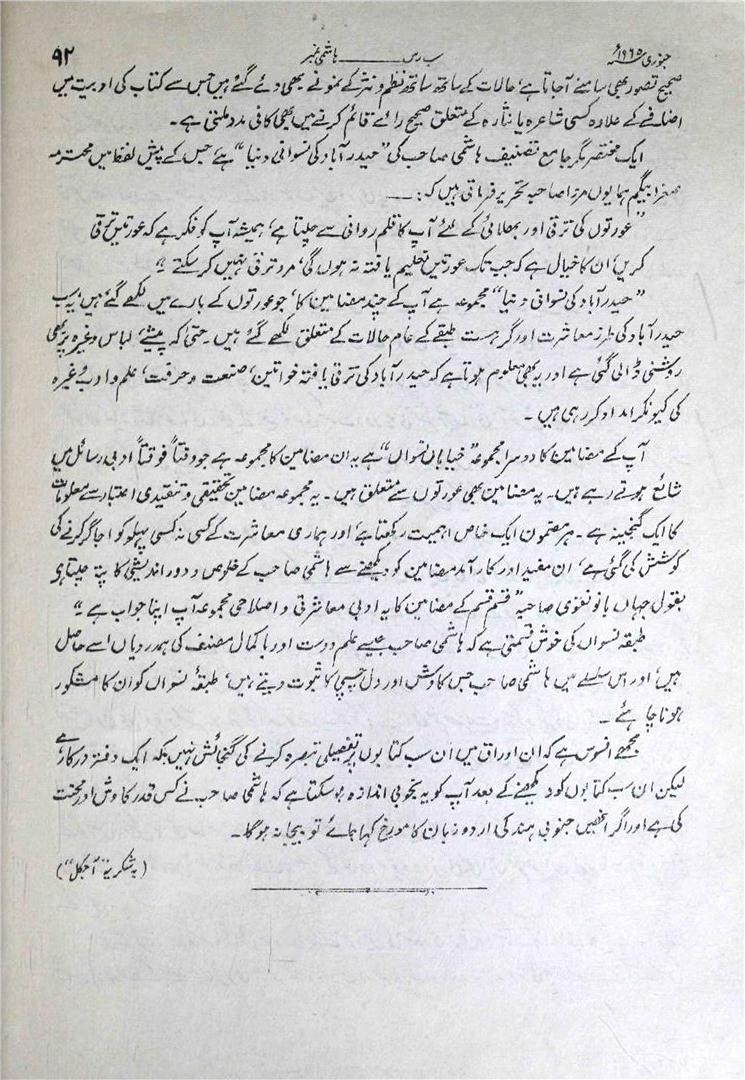 جنوری ۱۹۶۵ء سب رس ــــــ ہاشمی نمبر ۹۲
صحیح تصور بھی سامنے آجاتا ہے، حالات کے ساتھ ساتھ نظم و نثر کے نمونے بھی دئے گئے ہیں جس سے کتاب کی ادبیت میں
اضافے کے علاوہ کسی شاعرہ یا نثارہ کے متعلق صحیح رائے قائم کرنے میں بھی کافی مدد ملتی ہے۔
ایک مختصر مگر جامع تصنیف ہاشمی صاحب کی "حیدرآباد کی نسوانی دنیا" ہے جس کے پیش لفظ میں محترمہ
صغرا بیگم ہمایوں مرزا صاحبہ تحریر فرماتی ہیں کہ:ـــ
"عورتوں کی ترقی اور بھلائی کے لئے آپ کا قلم روانی سے چلتا ہے، ہمیشہ آپ کو فکر ہے کہ عورتیں ترقی
کریں، ان کا خیال ہے کہ جب تک عورتیں تعلیم یافتہ نہ ہوں گی، مرد ترقی نہیں کرسکتے"۔
"حیدرآباد کی نسوانی دنیا" مجموعہ ہے آپ کے چند مضامین کا، جو عورتوں کے بارے میں لکھے گئے ہیں، یہ سب
حیدرآباد کی طرز معاشرت اور گرہست طبقے کے عام حالات کے متعلق لکھے گئے ہیں۔ حتیٰ کہ پیشے، لباس وغیرہ پر بھی
روشنی ڈالی گئی ہے اور یہ بھی معلوم ہوتا ہے کہ حیدرآباد کی ترقی یافتہ خواتین، صنعت و حرفت، علم و ادب وغیرہ
کی کیونکر امداد کر رہی ہیں۔
آپ کے مضامین کا دوسرا مجموعہ "خیابان نسواں" ہے یہ ان مضامین کا مجموعہ ہے جو وقتاً فوقتاً ادبی رسائل میں
شائع ہوتے رہے ہیں۔ یہ مضامین بھی عورتوں سے متعلق ہیں۔ یہ مجموعہ مضامین تحقیقی و تنقیدی اعتبار سے معلومات
کا ایک گنجینہ ہے۔ ہر مضمون ایک خاص اہمیت رکھتا ہے اور ہماری معاشرت کے کسی نہ کسی پہلو کو اجاگر کرنے کی
کوشش کی گئی ہے، ان مفید اور کارآمد مضامین کو دیکھنے سے ہاشمی صاحب کے خلوص و دور اندیشی کا پتہ چلتا ہی
بقول جہاں بانو نقوی صاحبہ "قسم قسم کے مضامین کا یہ ادبی معاشرتی و اصلاحی مجموعہ آپ اپنا جواب ہے"۔
طبقہ نسواں کی خوش قسمتی ہے کہ ہاشمی صاحب جیسے علم دوست اور باکمال مصنف کی ہمدردیاں اسے حاصل
ہیں، اور اس سلسلے میں ہاشمی صاحب جس کاوش اور دل چسپی کا ثبوت دیتے ہیں، طبقۂ نسواں کو ان کا مشکور
ہونا چاہئے۔
مجھے افسوس ہے کہ ان اوراق میں ان سب کتابوں پر تفصیلی تبصرہ کرنے کی گنجائش نہیں بلکہ ایک دفتر درکار ہے
لیکن ان سب کتابوں کو دیکھنے کے بعد آپ کو یہ بخوبی اندازہ ہوسکتا ہے کہ ہاشمی صاحب نے کس قدر کاوش اور محنت
کی ہے اور اگر انھیں جنوبی ہند کی اردو زبان کا مورخ کہا جائے تو بیجا نہ ہوگا۔
(بہ شکریہ "آجکل")